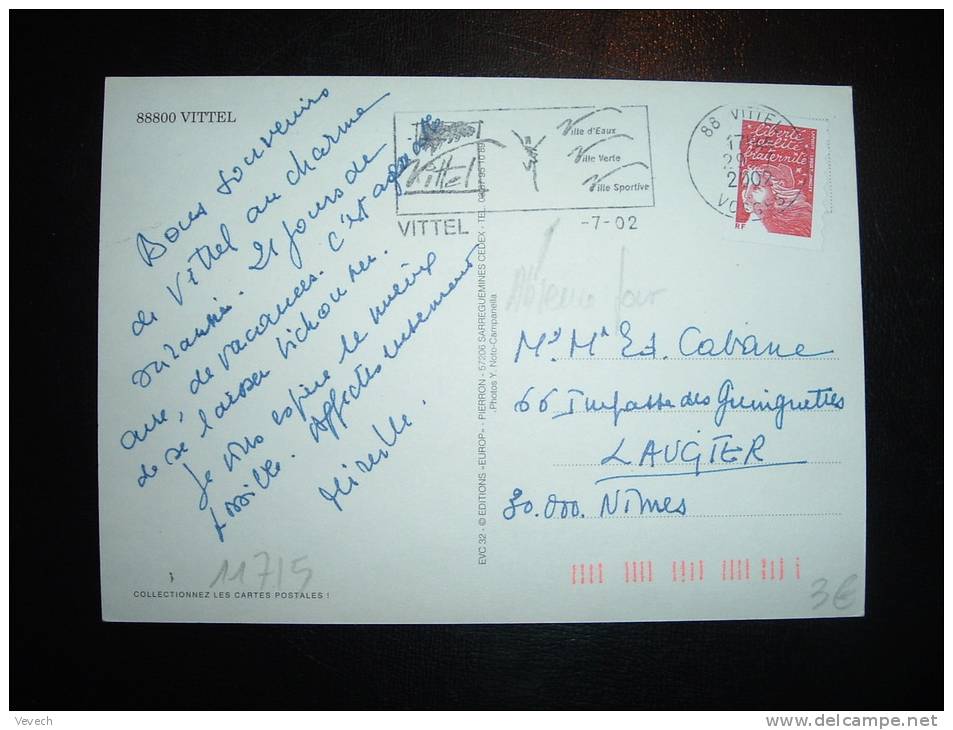 88800 VITTEL
Bons souvenirs
de Vittel au charme
suranné. 21 jours de
cure, de vacances. C'est agréable
de se laisser bichonner.
Je vous espère le mieux
possible. Affectueusement
Mireille.
11715
COLLECTIONNEZ LES CARTES POSTALES !
Vittel
Ville d'Eaux
Ville Verte
Ville Sportive
VITTEL
-7-02
88 VITTEL
2002
VOSGES
liberté
égalité
fraternité
RF
EVC 32 - © EDITIONS «EUROP» - PIERRON - 57206 SARREGUEMINES CEDEX - TEL. 03 87 95 10 89
Photos Y. Noto-Campanella
Mr Me Ed. Cabane
66 Impasse des Guinguettes
LAUGIER
30.000. Nîmes
3€
Vevech
www.delcampe.net